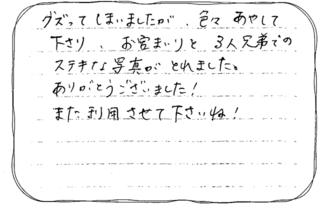 グズってしまいましたが、色々あやして
下さり、お宮まいりと3人兄弟での
ステキな写真がとれました。
ありがとうございました!
また利用させて下さいね!